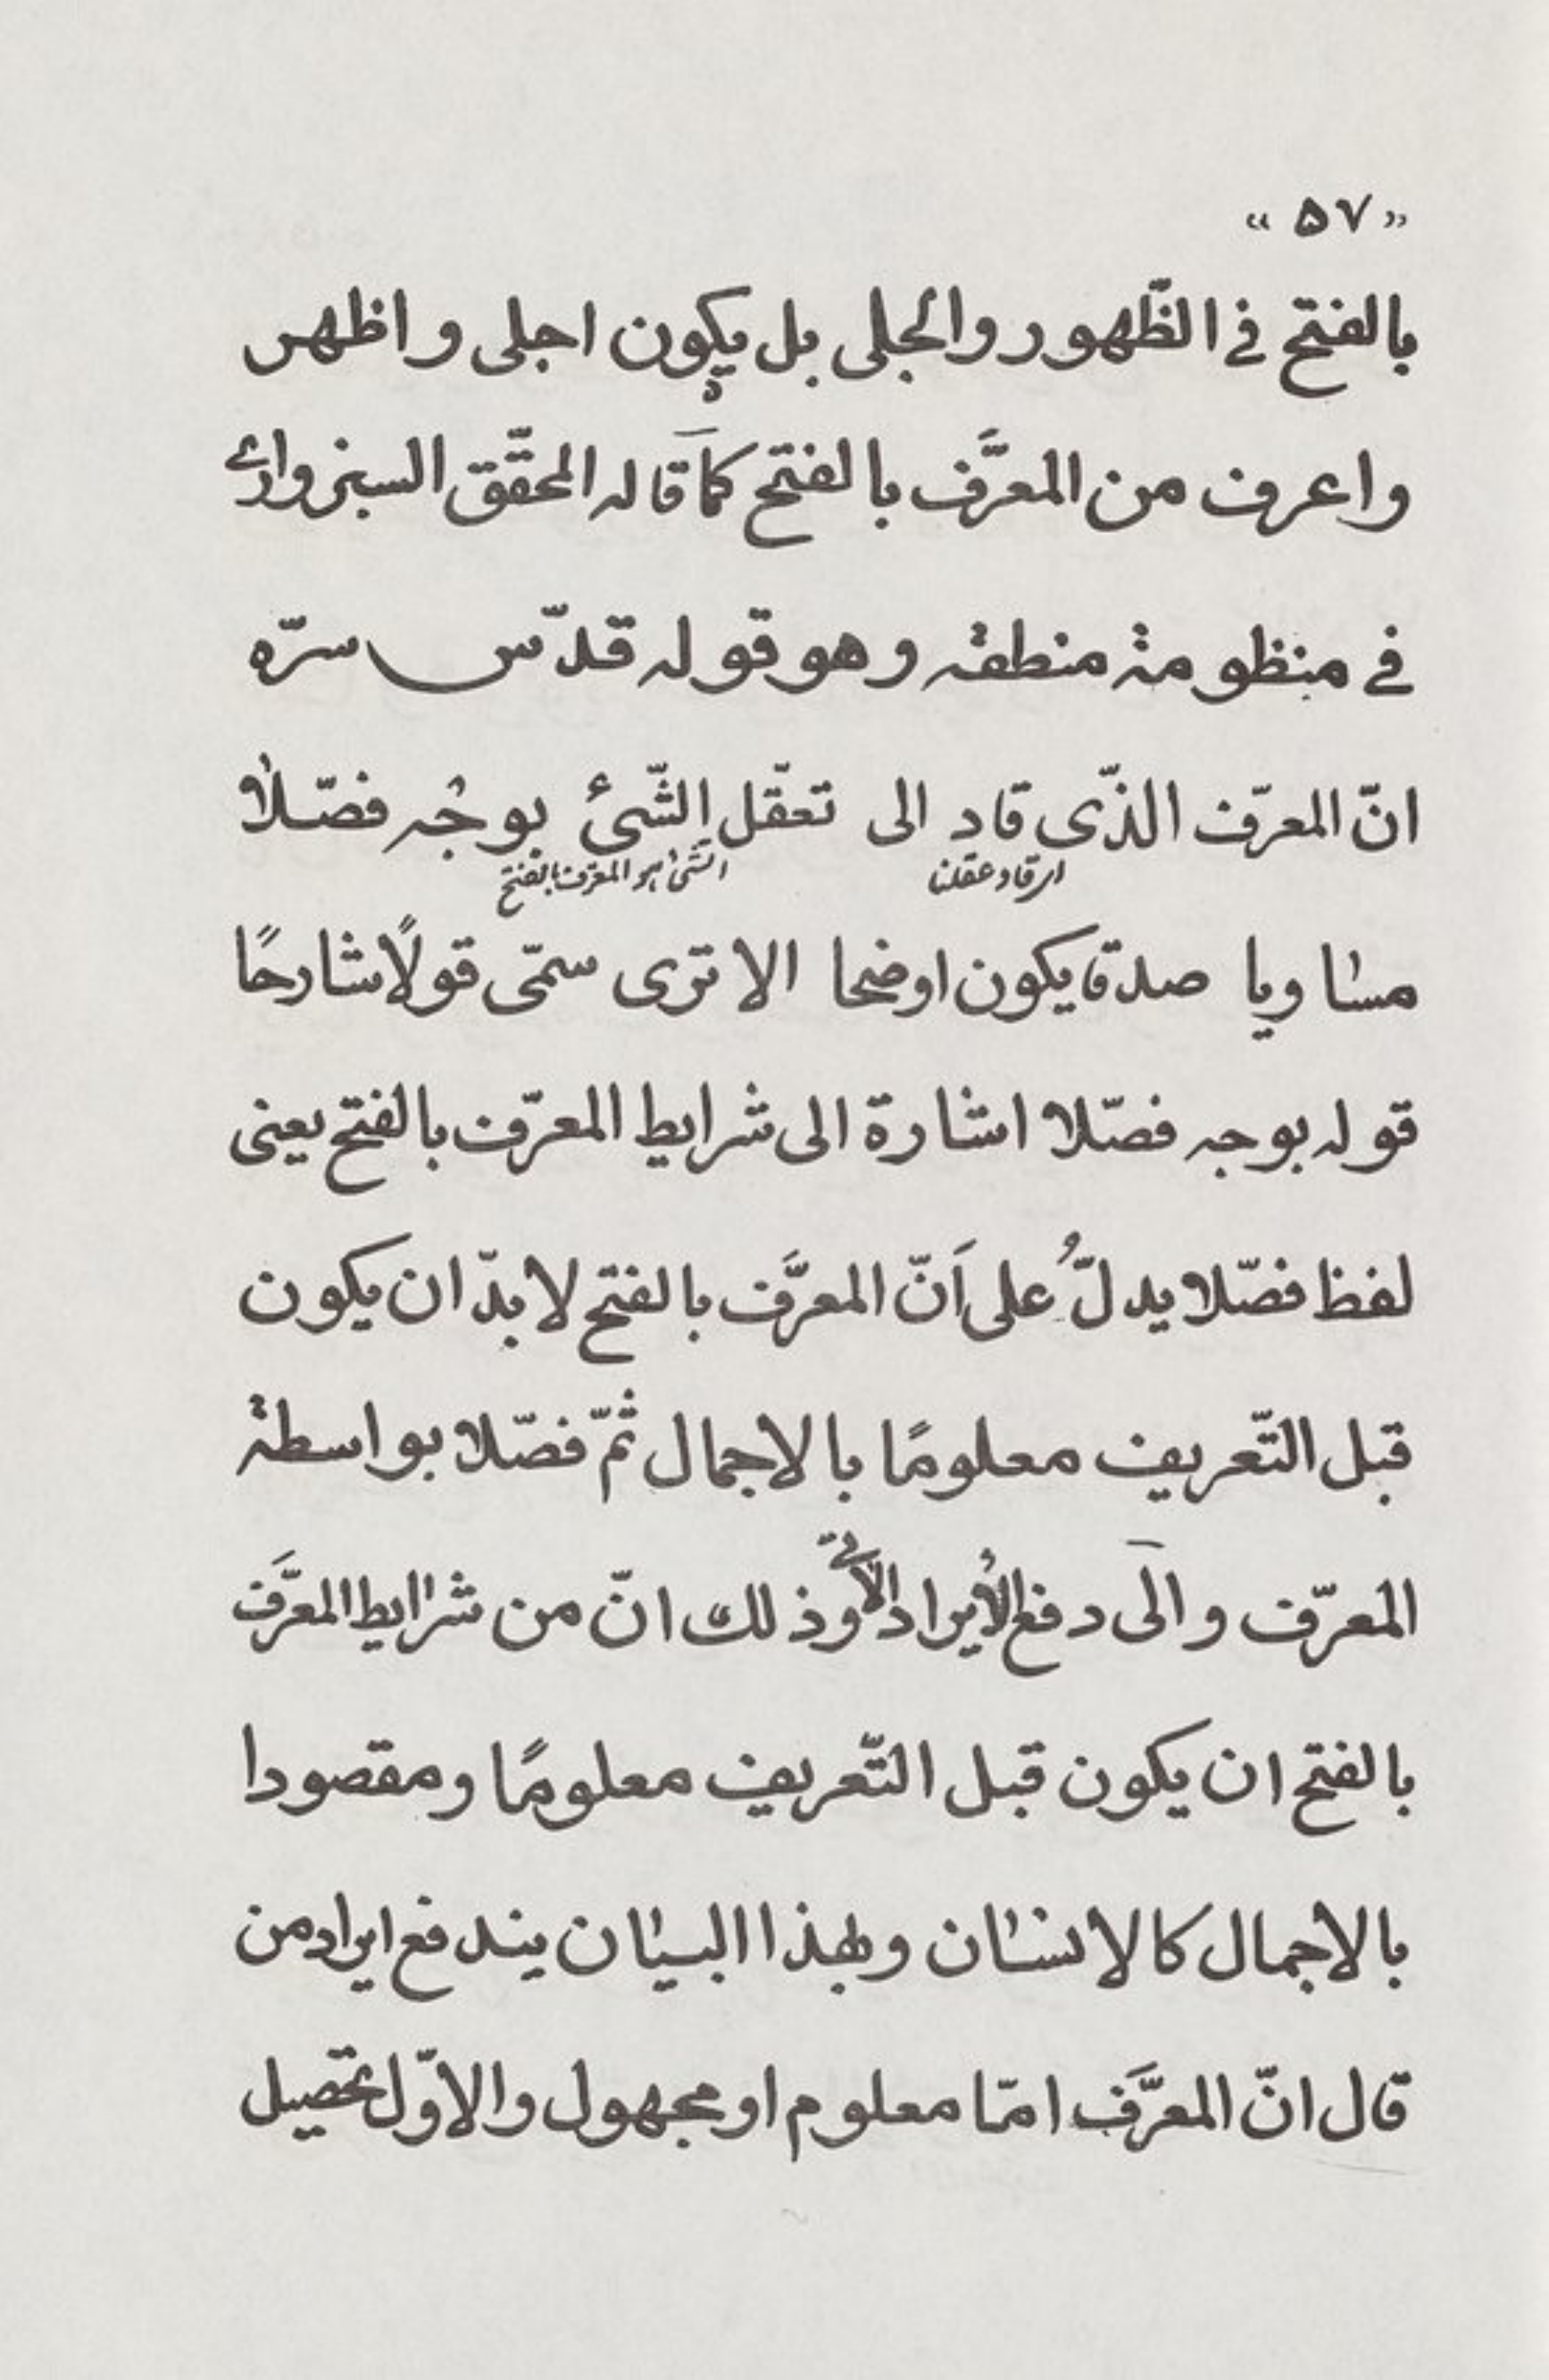 «۵۷»
بالفتح فى الظّهور والجلى بل يكون اجلى و اظهر
واعرف من المعرَّف بالفتح كما قاله المحقّق السبزوارى
فى منظومة منطقه و هو قوله قدّس سرّه
انّ المعرّف الذّى قاد الى تعقّل الشّىء بوجُه فصّلا
اى قاد عقلنا الشّىء هو المعرّف بالفتح
مساويا صدقا يكون اوضحا الا ترى سمّى قولًا شارحًا
قوله بوجه فصّلا اشارة الى شرايط المعرّف بالفتح يعنى
لفظ فصّلا يدلُّ على اَنّ المعرَّف بالفتح لا بدّ ان يكون
قبل التّعريف معلومًا بالاجمال ثمّ فصّلا بواسطة
المعرّف و الى دفع الأيراد الاٰتى وذلك انّ من شرايط المعرَّف
بالفتح ان يكون قبل التّعريف معلومًا ومقصودا
بالاجمال كالانسان وبهذا البيان يندفع ايراد من
قال انّ المعرَّف امّا معلوم او مجهول والاوّل تحصيل